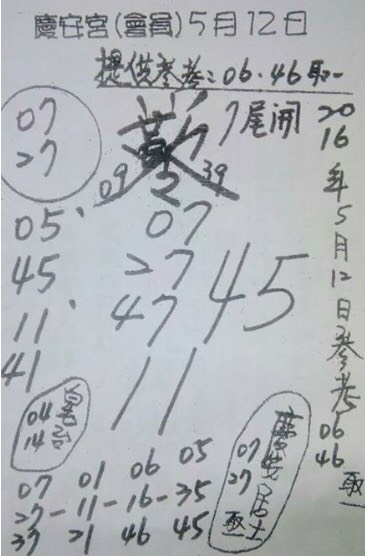 慶安宮(會員)5月12日
提供參考:06.46取一
07
27
7尾開
09
39
05、
45
11、
41
07
27
47
45
11
2016年5月12日參考06 46 取
04
14
07 01 06 05
27-11-16-35
37 21 46 45
07
27